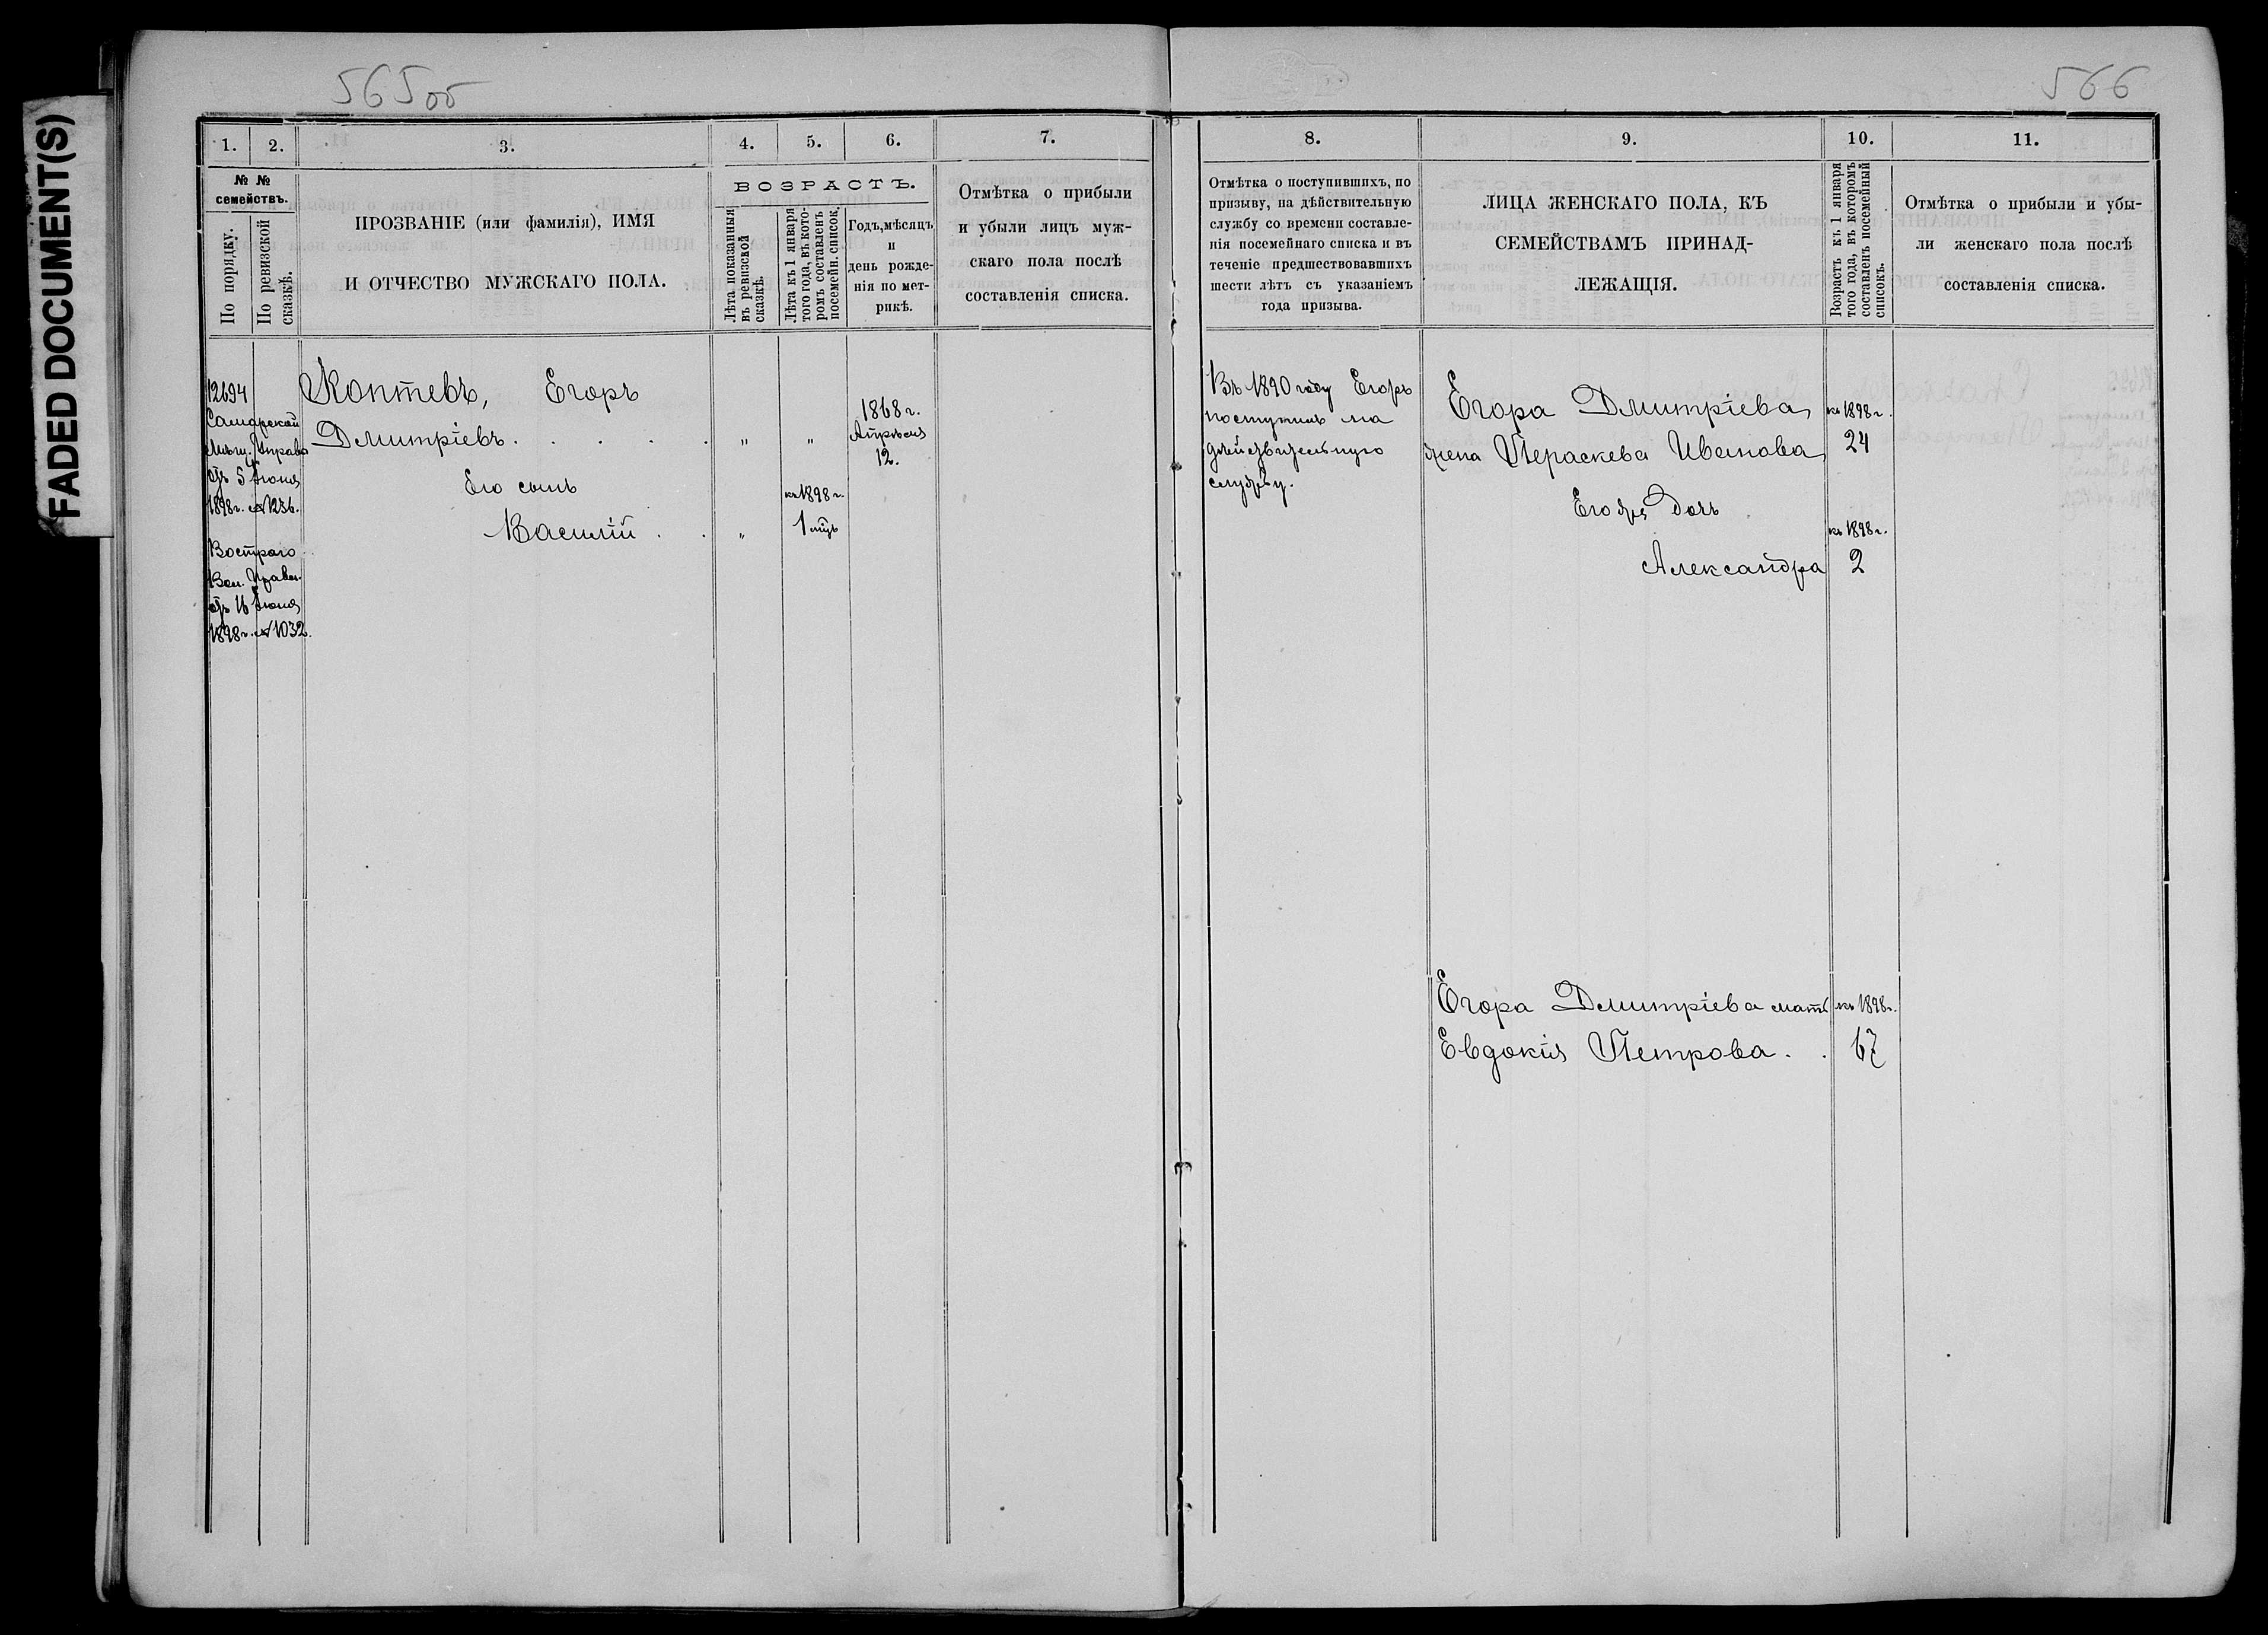 FADED DOCUMENT(S)
565об
566
1. 2. 3. 4. 5. 6. 7.
№ №
семействъ.
По порядку.
По ревизской
сказкѣ.
ПРОЗВАНІЕ (или фамилія), ИМЯ
И ОТЧЕСТВО МУЖСКАГО ПОЛА.
ВОЗРАСТЪ.
Лѣта показанныя
въ ревизской
сказкѣ.
Лѣта къ 1 января
того года, въ кото-
ромъ составленъ
посемейн. список.
Годъ, мѣсяцъ
и
день рожде-
нія по мет-
рикѣ.
Отмѣтка о прибыли
и убыли лицъ муж-
скаго пола послѣ
составленія списка.
12694
Самарской
Мѣщ. Управы
отъ 5 Іюня
1898 г. № 1236.
Вол. Правл.
отъ 16 Іюня
1898 г. № 1032.
Коптевъ, Егоръ
Дмитріевъ . . . . .
" "
1868 г.
Апрѣля
12.
Его сынъ
Василій . .
"
къ 1898 г.
1 мѣц
8. 9. 10. 11.
Отмѣтка о поступившихъ, по
призыву, на дѣйствительную
службу со времени составле-
нія посемейнаго списка и въ
теченіе предшествовавшихъ
шести лѣтъ съ указаніемъ
года призыва.
ЛИЦА ЖЕНСКАГО ПОЛА, КЪ
СЕМЕЙСТВАМЪ ПРИНАД-
ЛЕЖАЩІЯ.
Возрастъ къ 1 января
того года, въ которомъ
составленъ посемейный
списокъ.
Отмѣтка о прибыли и убы-
ли женскаго пола послѣ
составленія списка.
Въ 1890 году Егоръ
поступилъ на
дѣйствительную
службу.
Егора Дмитріева
жена Пераскева Иванова
къ 1898 г.
24
Его же дочь
Александра
къ 1898 г.
2
Егора Дмитріева мать
Евдокія Петрова . .
къ 1898 г.
67